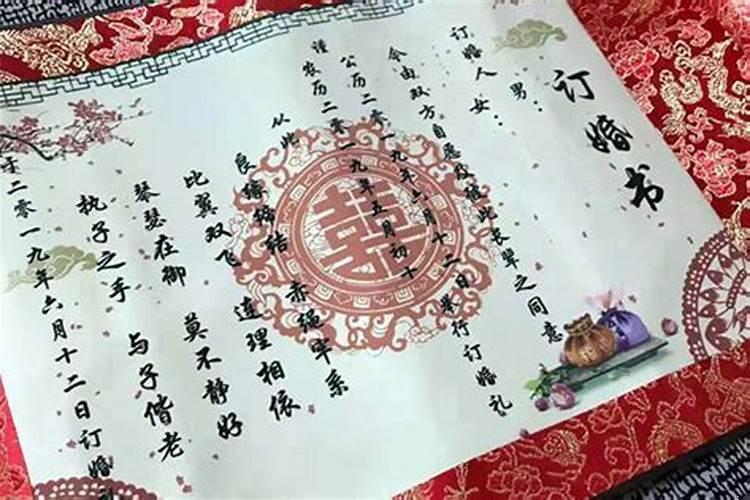 订婚书
订婚人 男：
女：
今由双方自愿及 彼此长辈之同意
公历二零一九年六月十二日举行订婚礼
谨 农历二零一九年五月初十
从此 赤绳牢系
良缘缔结 连理相依
比翼双飞 莫不静好
琴瑟在御 与子偕老
执子之手
于二零一九年六月十二日订婚